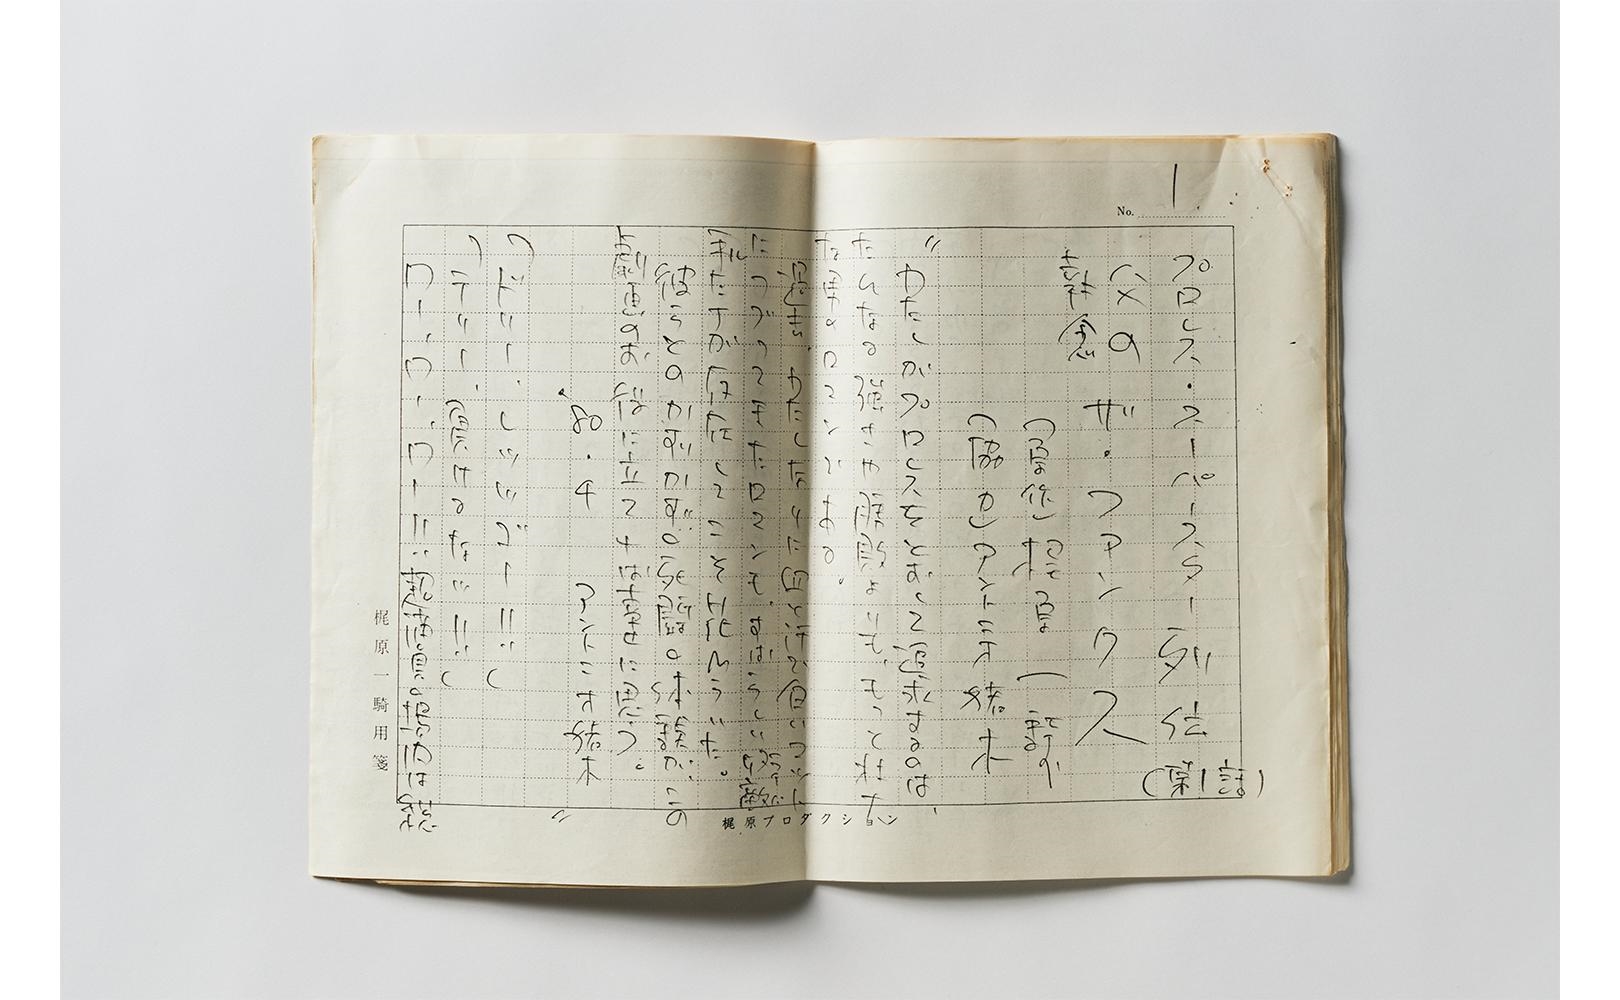 No. 1
プロレス・スーパースター列伝(第1話)
父の執念
ザ・ファンクス
(原作)梶原一騎
(協力)アントニオ猪木
〝わたしがプロレスをとおして追求するのは、
たんなる強さや勝敗よりも、もっと壮大
な男のロマンである。
過去、わたしなりに血と汗で白いマット
につづってきたロマンも、すばらしい好敵
手たちが存在してこそ花ひらいた。
ライバル
彼らとのかずかずの死闘の体験が、この
劇画のお役に立てれば幸せに思う。
'80・4 アントニオ猪木〟
(ドリー、レッツゴー!!)
(テリー、負けるなッ!!)
ワー、ワー、ワー!! 満員の場内は
梶原一騎用箋
梶原プロダクション